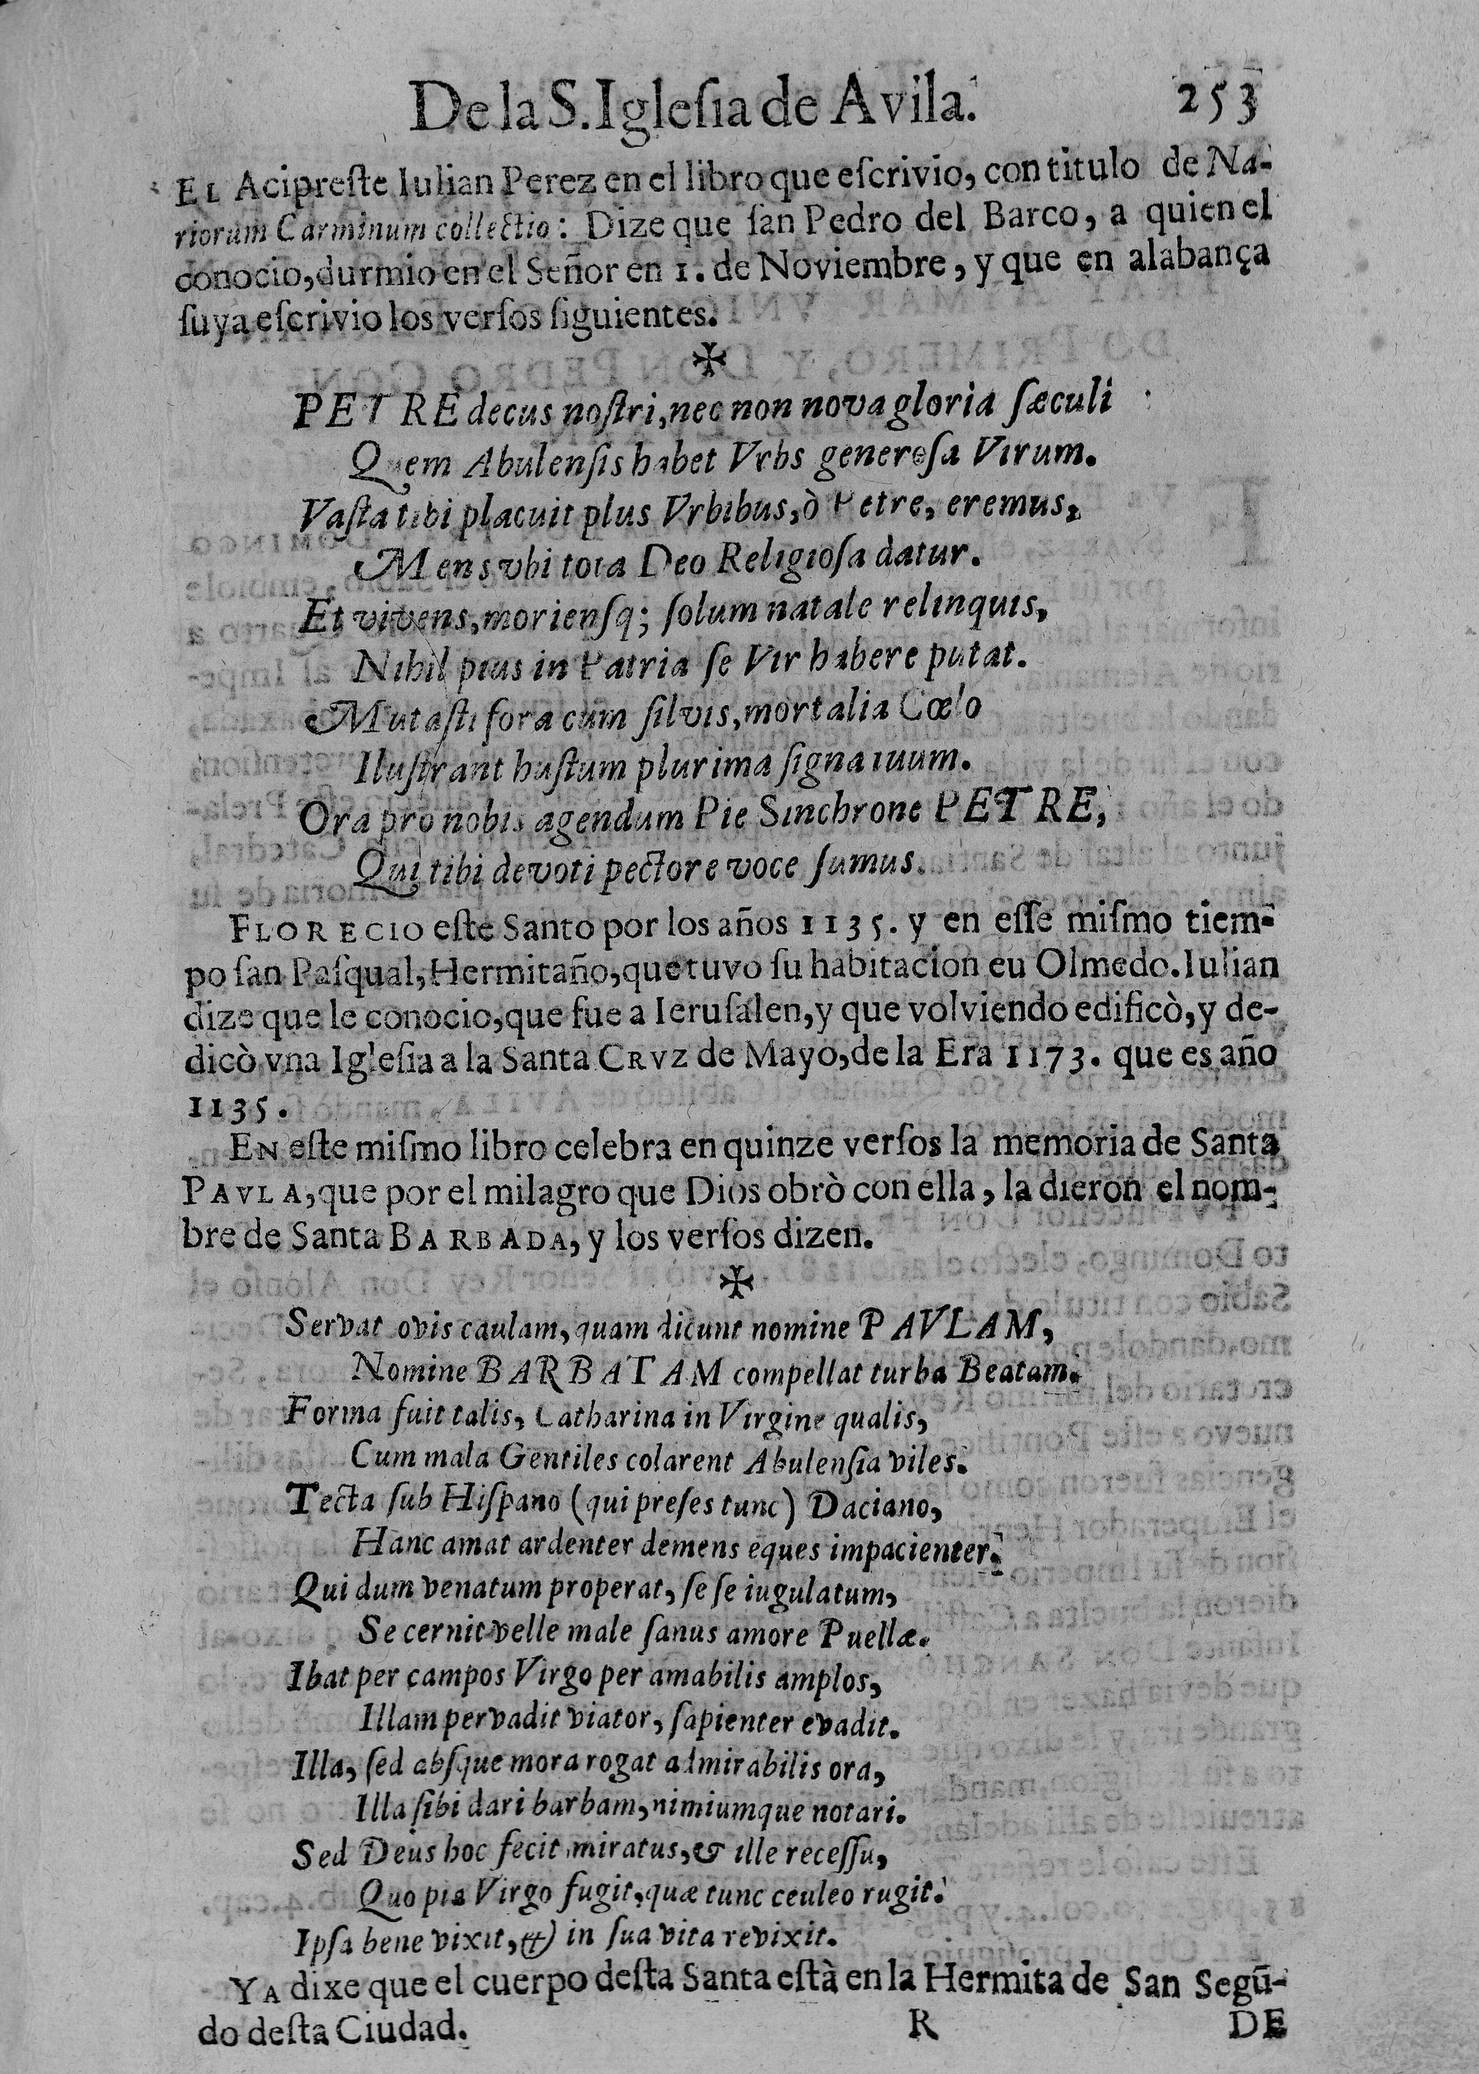 De la S. Iglesia de Avila. 253
EL Acipreste Iulian Perez en el libro que escrivio, con titulo de Na-
riorum Carminum collectio: Dize que san Pedro del Barco, a quien el
conocio, durmio en el Señor en 1. de Noviembre, y que en alabança
suya escrivio los versos siguientes.
✠
PETRE decus nostri, nec non nova gloria sæculi
Quem Abulensis habet Vrbs generosa Virum.
Vasta tibi placuit plus Vrbibus, ò Petre, eremus,
Mens vbi tota Deo Religiosa datur.
Et vivens, moriensq; solum natale relinquis,
Nihil pius in Patria se Vir habere putat.
Mutasti fora cum silvis, mortalia Cœlo
Ilustrant bustum plurima signa tuum.
Ora pro nobis agendum Pie Sinchrone PETRE,
Qui tibi devoti pectore voce sumus.
FLORECIO este Santo por los años 1135. y en esse mismo tiem-
po san Pasqual, Hermitaño, que tuvo su habitacion eu Olmedo. Iulian
dize que le conocio, que fue a Ierusalen, y que volviendo edificò, y de-
dicò vna Iglesia a la Santa CRVZ de Mayo, de la Era 1173. que es año
1135.
EN este mismo libro celebra en quinze versos la memoria de Santa
PAVLA, que por el milagro que Dios obrò con ella, la dieron el nom-
bre de Santa BARBADA, y los versos dizen.
✠
Servat ovis caulam, quam dicunt nomine PAVLAM,
Nomine BARBATAM compellat turba Beatam.
Forma fuit talis, Catharina in Virgine qualis,
Cum mala Gentiles colarent Abulensia viles.
Tecta sub Hispano (qui preses tunc) Daciano,
Hanc amat ardenter demens eques impacienter.
Qui dum venatum properat, se se iugulatum,
Se cernit velle male sanus amore Puellæ.
Ibat per campos Virgo per amabilis amplos,
Illam pervadit viator, sapienter evadit.
Illa, sed absque mora rogat admirabilis ora,
Illa sibi dari barbam, nimiumque notari.
Sed Deus hoc fecit miratus, & ille recessu,
Quo pia Virgo fugit, quæ tunc ceuleo rugit.
Ipsa bene vixit, & in sua vita revixit.
YA dixe que el cuerpo desta Santa està en la Hermita de San Segū-
do desta Ciudad. R DE